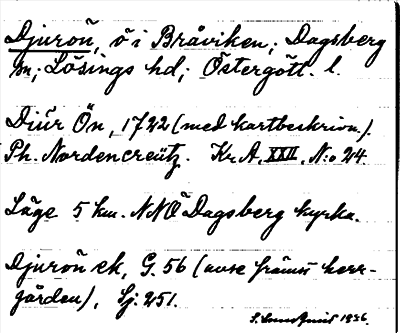 Djurön, ö i Bråviken; Dagsberg
sn; Lösings hd; Östergötl. l.
Diúr Ön, 1722 (med kartbeskrivn.).
Ph. Nordencreütz. Kr. A. XXII, N:o 24.
Läge 5 km. NNÖ Dagsberg kyrka.
Djurön ek, G. 56 (avse främst herr-
gården), Sj: 251.
1936